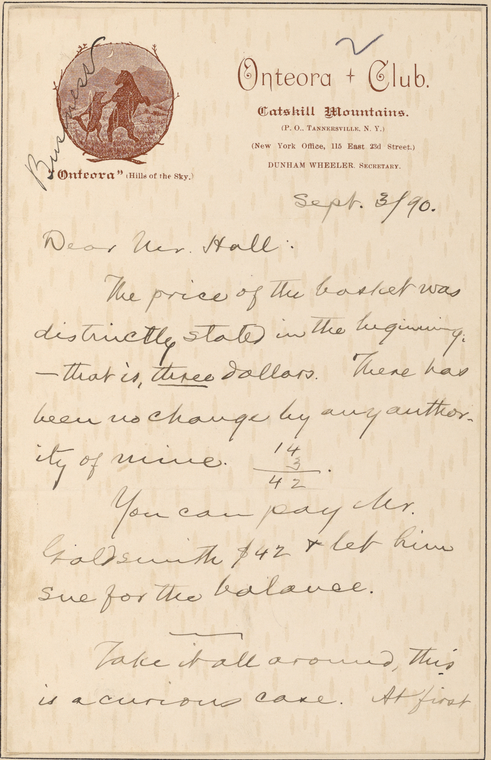 Business
2
Onteora + Club.
Catskill Mountains.
(P. O., Tannersville, N. Y.)
(New York Office, 115 East 23d Street.)
DUNHAM WHEELER, Secretary.
"Onteora" (Hills of the Sky.)
Sept. 3/90.
Dear Mr. Hall:
The price of the basket was
distinctly stated in the beginning,
—that is, three dollars. There has
been no change by any author-
ity of mine.
14
3
42
You can pay Mr.
Goldsmith $42 & let him
sue for the balance.
Take it all around, this
is a curious case. At first